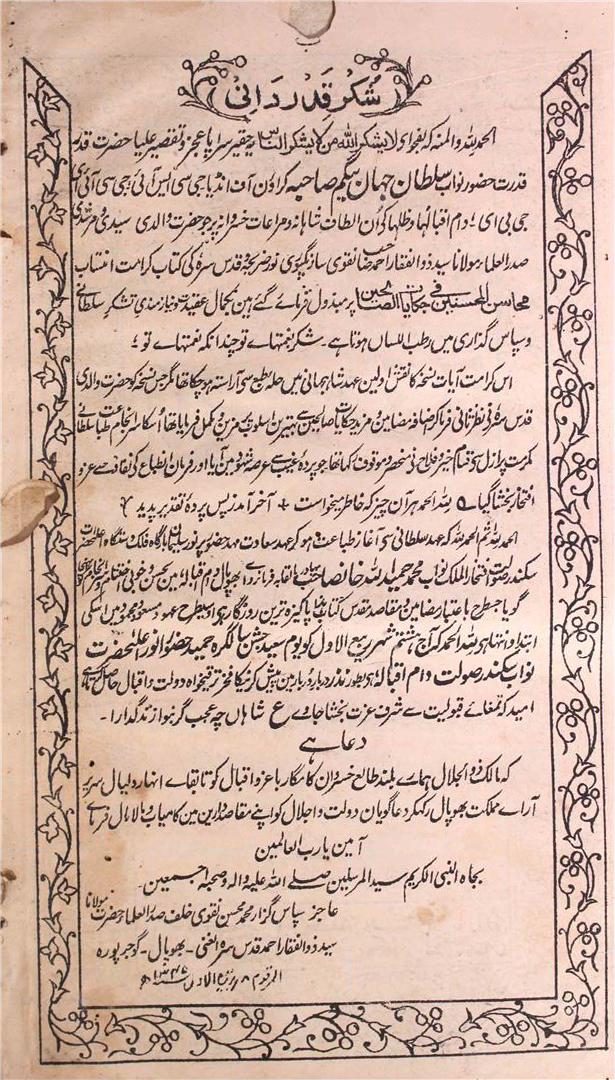 شکر قدردانی
الحمد للہ والمنہ کہ بفحوای لا یشکر اللہ من لا یشکر الناس یہ حقیر سراپا عجز و تقصیر علیا حضرت قدر
قدرت حضور نواب سلطان جہان بیگم صاحبہ کراؤن آف انڈیا جی سی ایس آئی جی سی آئی ای
جی بی ای، دام اقبالہا و ظلہا کی اُن الطاف شاہانہ و مراعات خسروانہ پر جو حضرت والدی سیدی و مرشدی
صدر العلما مولانا سید ذوالفقار احمد صاحب نقوی سارنگپوری نور ضریحہ و قدس سرہ کی کتاب کرامت انتساب
محاسن المحسنین فی حکایات الصالحین پر مبذول فرمائے گئے ہین بکمال عقیدت و نیازمندی تشکر سلطانی
و سپاس گذاری میں رطب اللساں ہوتا ہے۔ شکر نعمتہاے تو چندانکہ نعمتہاے تو؛
اس کرامت آیات نسخہ کا نقش اولین عہد شاہجہانی میں حلہ طبع سے آراستہ ہو چکا تھا مگر جس نسخہ کو حضرت والدی
قدس سرہ نے نظر ثانی فرماکر اضافہ مضامین و مزید حکایات صالحین سے بہترین اسلوب پر مزین و مکمل فرمایا تھا اسکا سرانجام طباعت سلطانی
مکرمت پر ازل سے قسام خیر و فلاح نے منحصر و موقوف رکھا تھا جو پردہ غیب سے عرصہ شہود میں آیا اور فرمان انطباع کی نفاذ سے عز و
افتخار بخشا گیا ؎ للہ الحمد ہر آن چیز کہ خاطر میخواست + آخر آمد ز پس پردہ تقدیر پدید ؎
الحمد للہ ثم الحمد للہ کہ عہد سلطانی سے آغاز طباعت ہو کر عہد سعادت مہد حضور پر نور سلیمان بارگاہ فلک دستگاہ اعلیٰ حضرت
سکندر صولت افتخار الملک نواب محمد حمید اللہ خانصاحب بہادر بالقابہ فرمانروای بھوپال دام اقبالہ میں بحسن و خوبی اختتام
گویا جسطرح باعتبار مضامین و مقاصد مقدس کتاب ہذا پاکیزہ ترین روزگار ہی اوسیطرح عہود مسعود و محمود میں اسکی
ابتدا و انتہا ہی للہ الحمد کہ آج ہشتم شہر ربیع الاول کو یوم سعید جشن سالگرہ حمید حضور انور اعلیٰحضرت
نواب سکندر صولت دام اقبالہ ہی بطور نذر دربار دُربار میں پیش کرنیکا فخر نتیجہ خواہ دولت و اقبال حاصل کر کے
امید کہ تمغاے قبولیت سے شرف عزت بخشا جاوے ع شاہاں چہ عجب گر بنوازند گدا را۔
دعا ہے
کہ مالک ذو الجلال ہمارے بلند طالع خسروان کامگار باعز و اقبال کو تا بقاے انہار و لیال سریر
آراے مملکت بھوپال رکھکر دعاگویان دولت و اجلال کو اپنے مقاصد دارین میں کامیاب و مالامال فرمائے
آمین یا رب العالمین
بجاہ النبی الکریم سید المرسلین صلے اللہ علیہ والہ وصحبہ اجمعین۔
عاجز سپاس گزار محمد محسن نقوی خلف صدر العلما حضرت مولانا
سید ذوالفقار احمد قدس سرہ الغنی۔ بھوپال۔ گوجرپورہ
المرقوم ۸ ربیع الاول